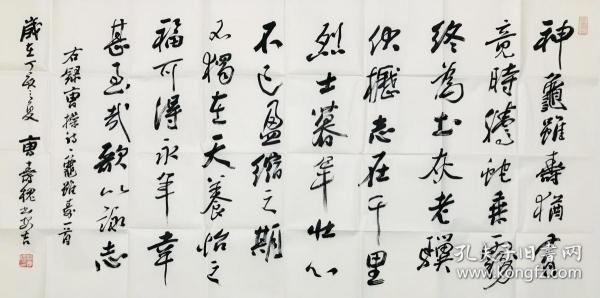 神龜雖壽猶有
竟時騰蛇乘霧
終為土灰老驥
伏櫪志在千里
烈士暮年壯心
不已盈縮之期
不獨在天養怡之
福可得永年幸
甚至哉歌以詠志
右錄曹操詩龜雖壽一首
歲在丁亥之夏 曹壽槐书於古
孔夫子旧书网
www.kongfz.com